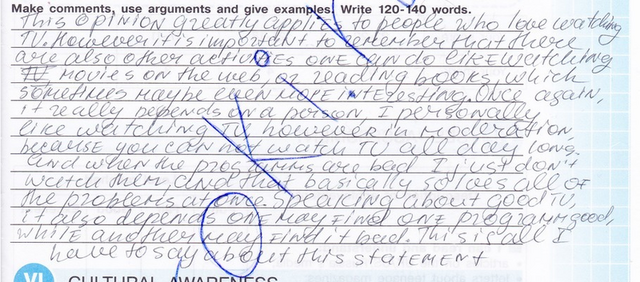 Make comments, use arguments and give examples. Write 120-140 words.
This opinion greatly applies to people who love watching
TV. However it is important to remember that there
are also other activities one finds like watching
TV movies on the web, or reading books, which
sometimes maybe even more interesting. Once again,
it really depends on a person I personally
like watching TV however in moderation,
because you can not watch TV all day long.
And when the programs are bad I just don't
watch them, and that basically solves all of
the problems at once. Speaking about good TV,
it also depends one may find one program good,
while another may find it bad. This is all I
have to say about this statement
VI CULTURAL AWARENESS